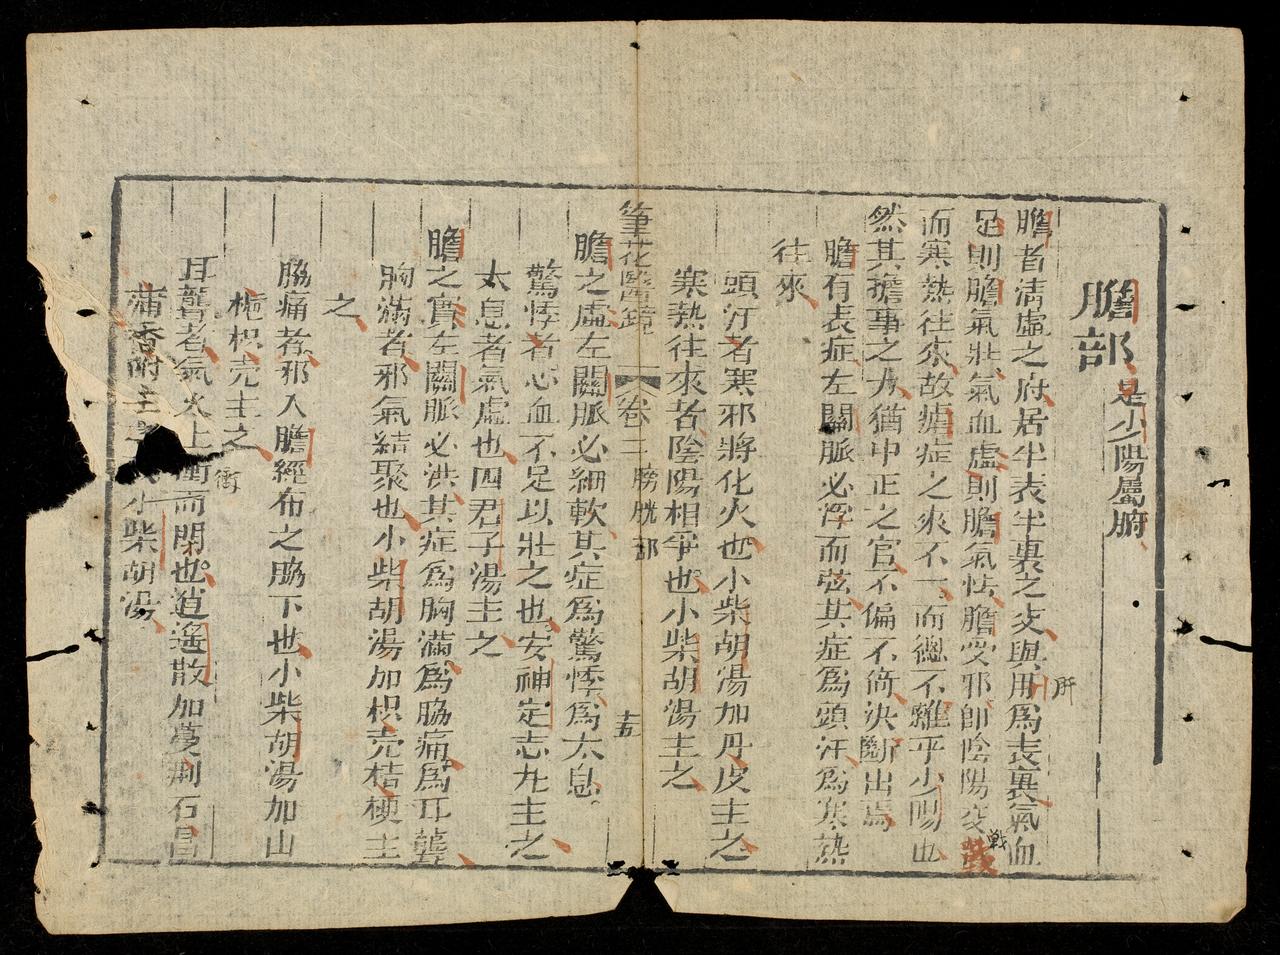 膽部 是少陽屬腑
膽者清虛之府居半表半裏之交與肝爲表裏氣血
足則膽氣壯氣血虛則膽氣怯膽受邪卽陰陽交戰
而寒熱往來故瘧症之來不一而總不離乎少陽也
然其擔事之力猶中正之官不偏不倚決斷出焉
膽有表症左關脈必浮而弦其症爲頭汗爲寒熱
往來
頭汗者寒邪將化火也小柴胡湯加丹皮主之
寒熱往來者陰陽相爭也小柴胡湯主之
筆花醫鏡 卷二 膀胱部 十五
膽之虛左關脈必細軟其症爲驚悸爲太息
驚悸者心血不足以壯之也安神定志丸主之
太息者氣虛也四君子湯主之
膽之實左關脈必洪其症爲胸滿爲脇痛爲耳聾
胸滿者邪氣結聚也小柴胡湯加枳壳桔梗主
之
脇痛者邪入膽經布之脇下也小柴胡湯加山
梔枳壳主之
耳聾者氣火上衝而閉也逍遙散加蔓荆石昌
蒲香附主之 小柴胡湯
肝
戰
衝